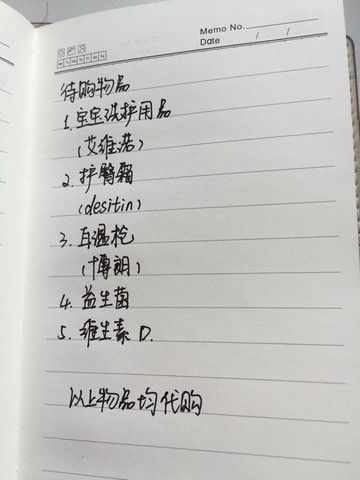 Memo No.
Date / /
待购物品
1. 宝宝洗护用品
(艾维诺)
2. 护臀霜
(desitin)
3. 耳温枪
(博朗)
4. 益生菌
5. 维生素 D.
以上物品均代购